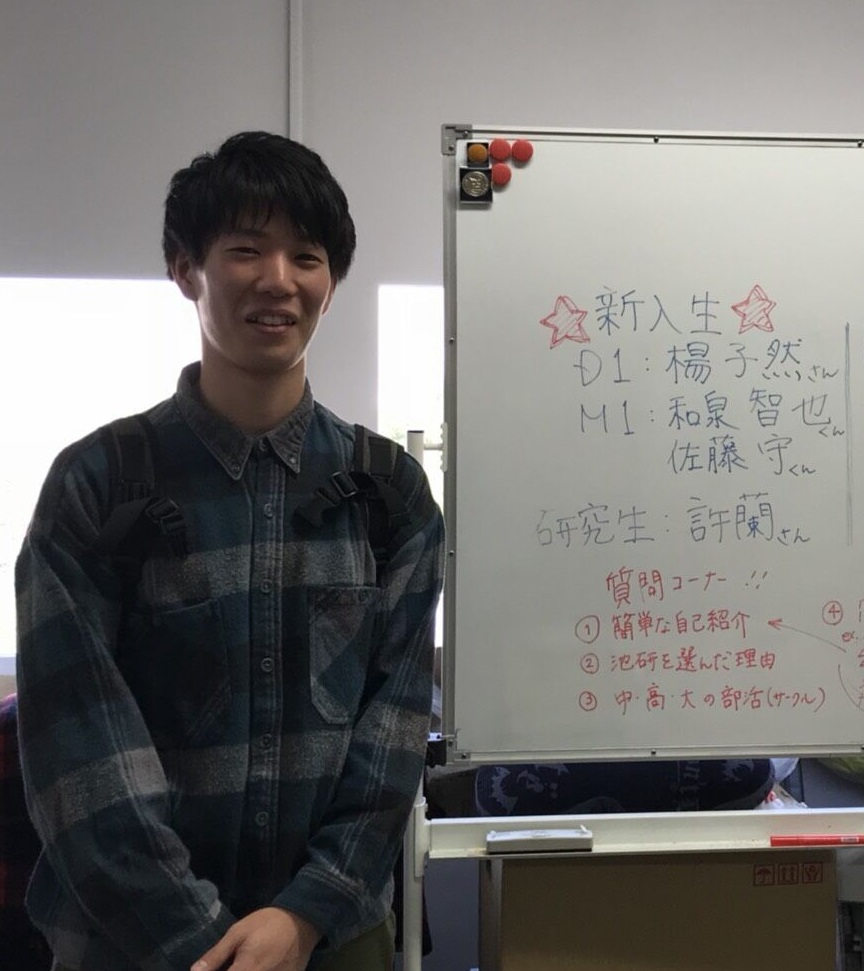 新入生
D1：楊子然さん
M1：和泉智也くん
佐藤守くん
研究生：許蘭さん
質問コーナー!!
① 簡単な自己紹介
② 池研を選んだ理由
③ 中・高・大の部活(サークル)
④